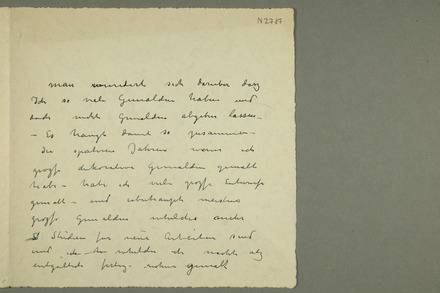 N 2787
man wundert sich darüber daß
Ich so viele Gemälden habe und
doch nicht Gemälden abgeben lassen –
– Es hängt damit so zusammen –
die spätern Jahren wenn ich
große dekorative Gemälden gemalt
habe – habe ich viele große Entwürfe
gemalt – und überhaupt meistens
große Gemälden
Studien für neue Arbeiten sind
und ich nicht als
fertig gemalt